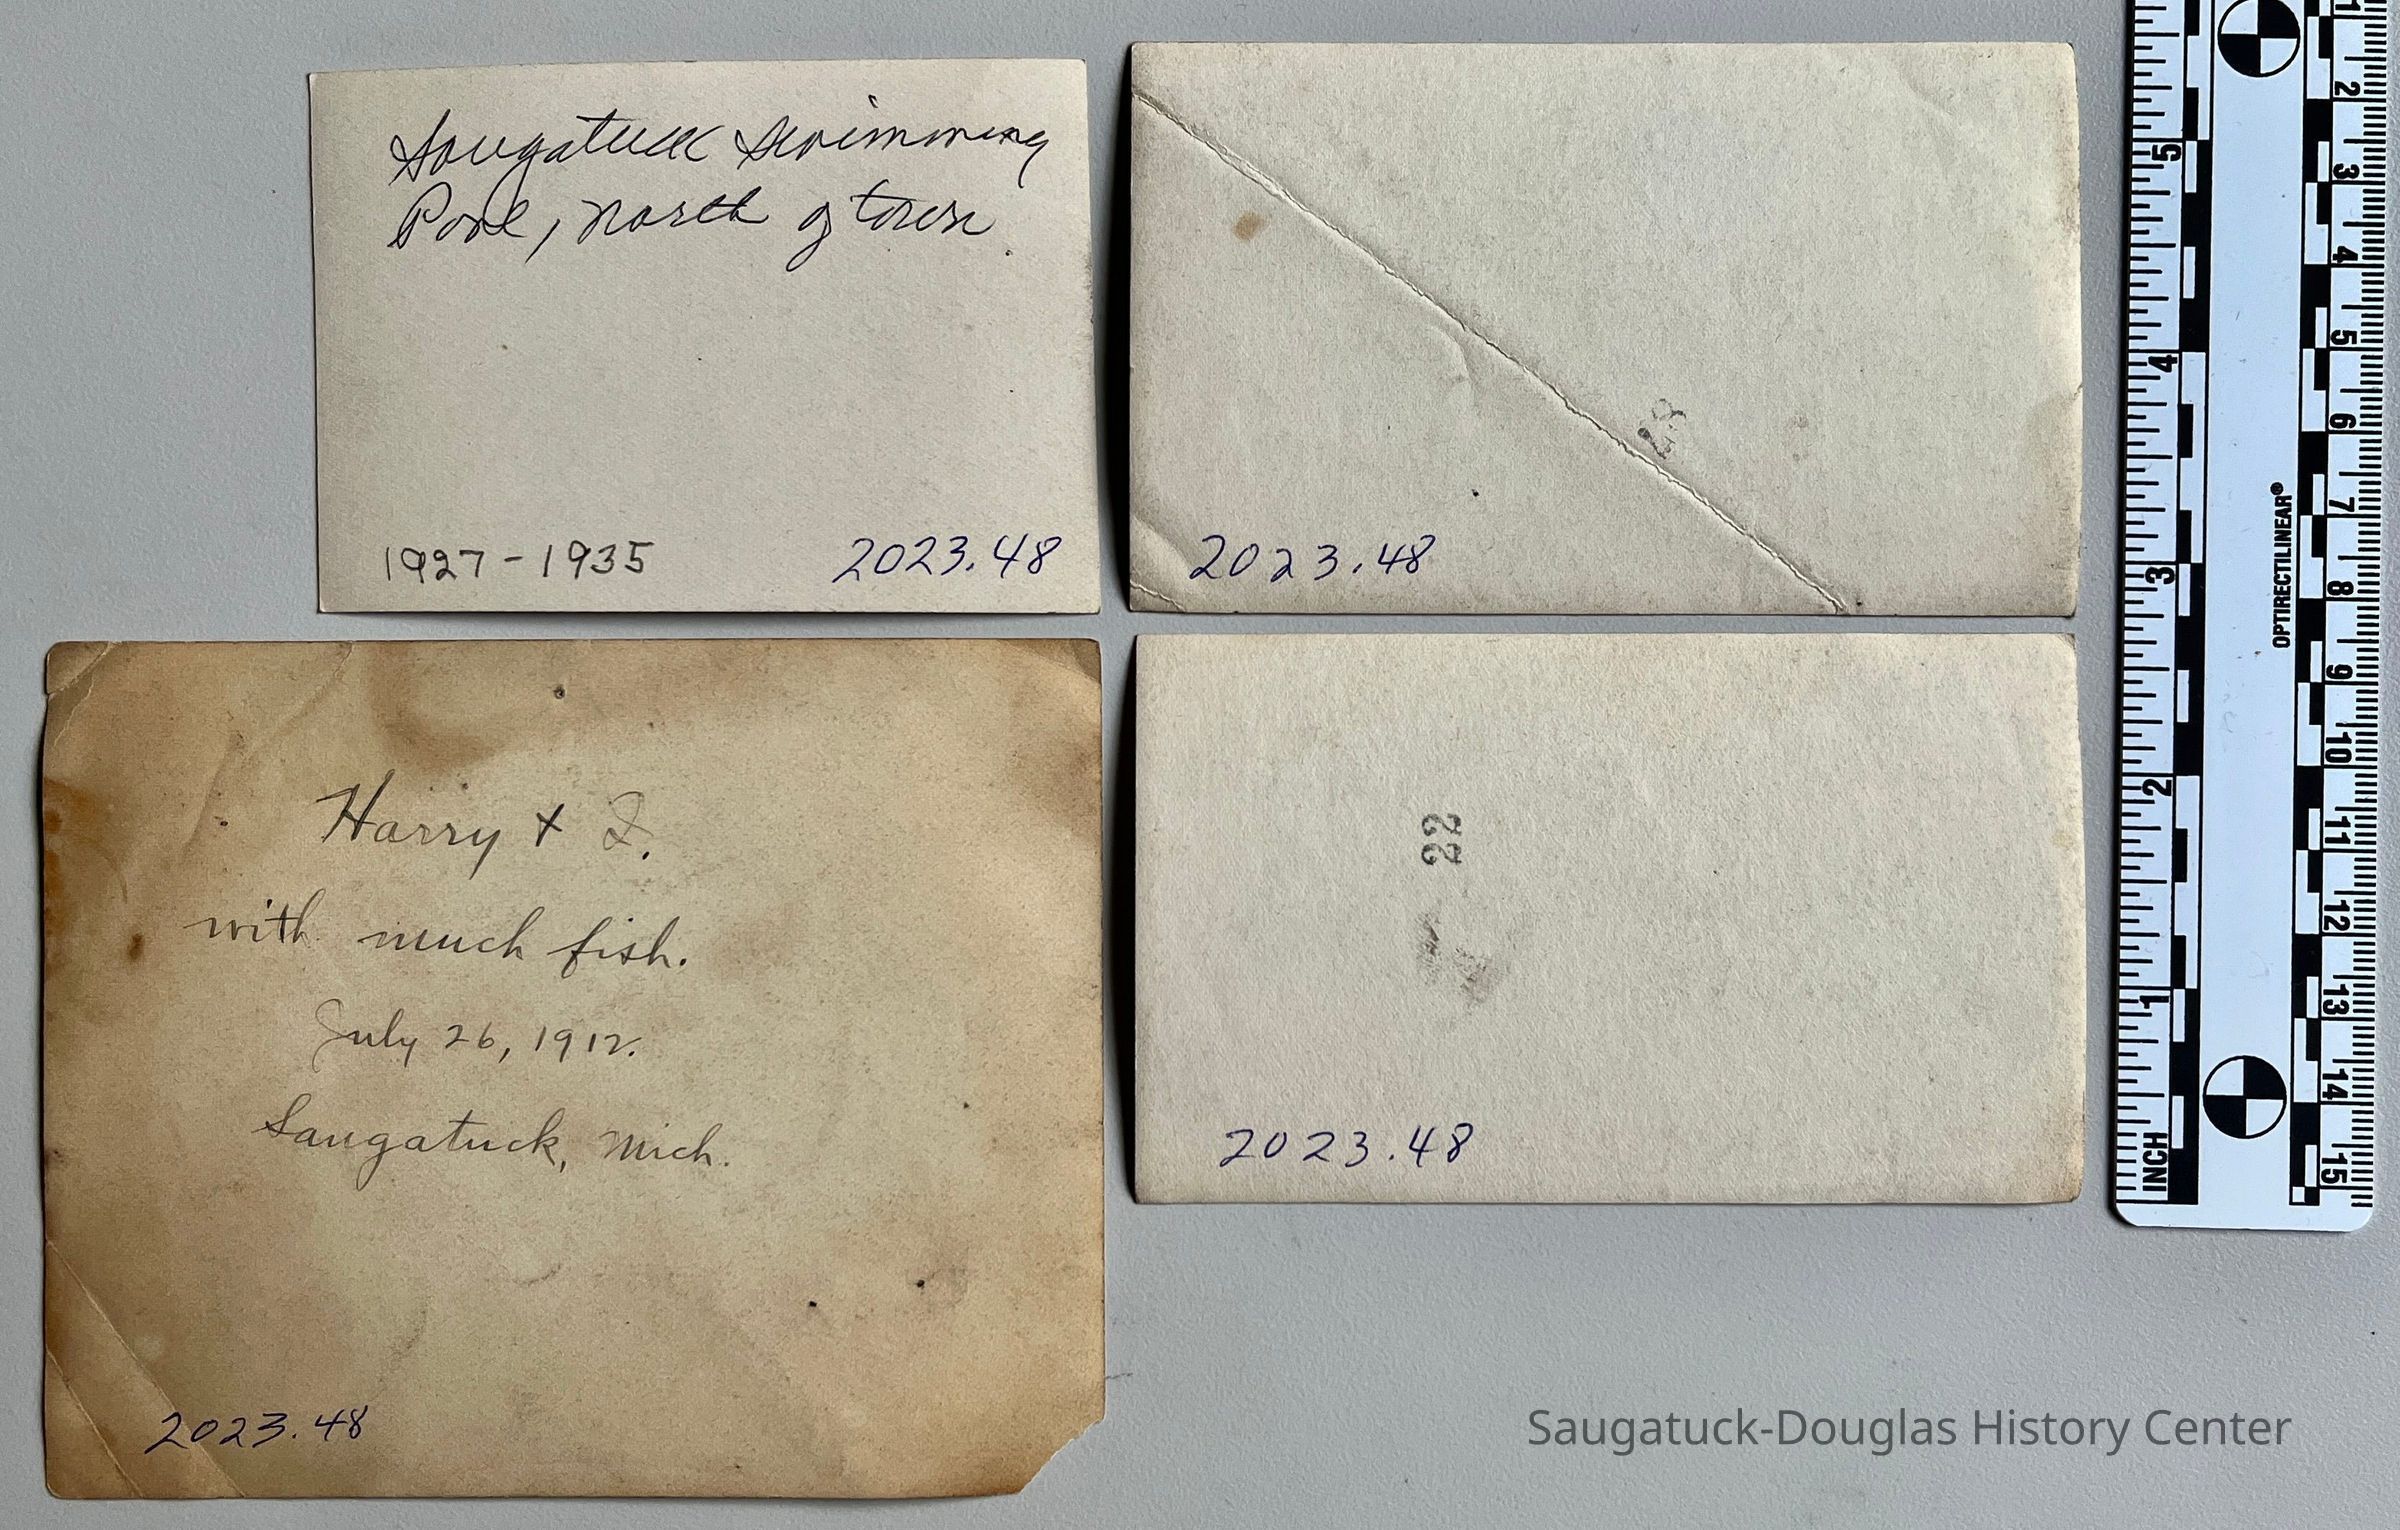 Saugatuck Swimming
Pool, north of town
1927-1935
2023.48
28
2023.48
Harry + I.
with much fish.
July 26, 1912.
Saugatuck, Mich.
2023.48
22
2023.48
5
4
3
2
1
INCH
1
2
3
4
5
6
7
8
9
10
11
12
13
14
15
OPTIRECTILINEAR®
Saugatuck-Douglas History Center